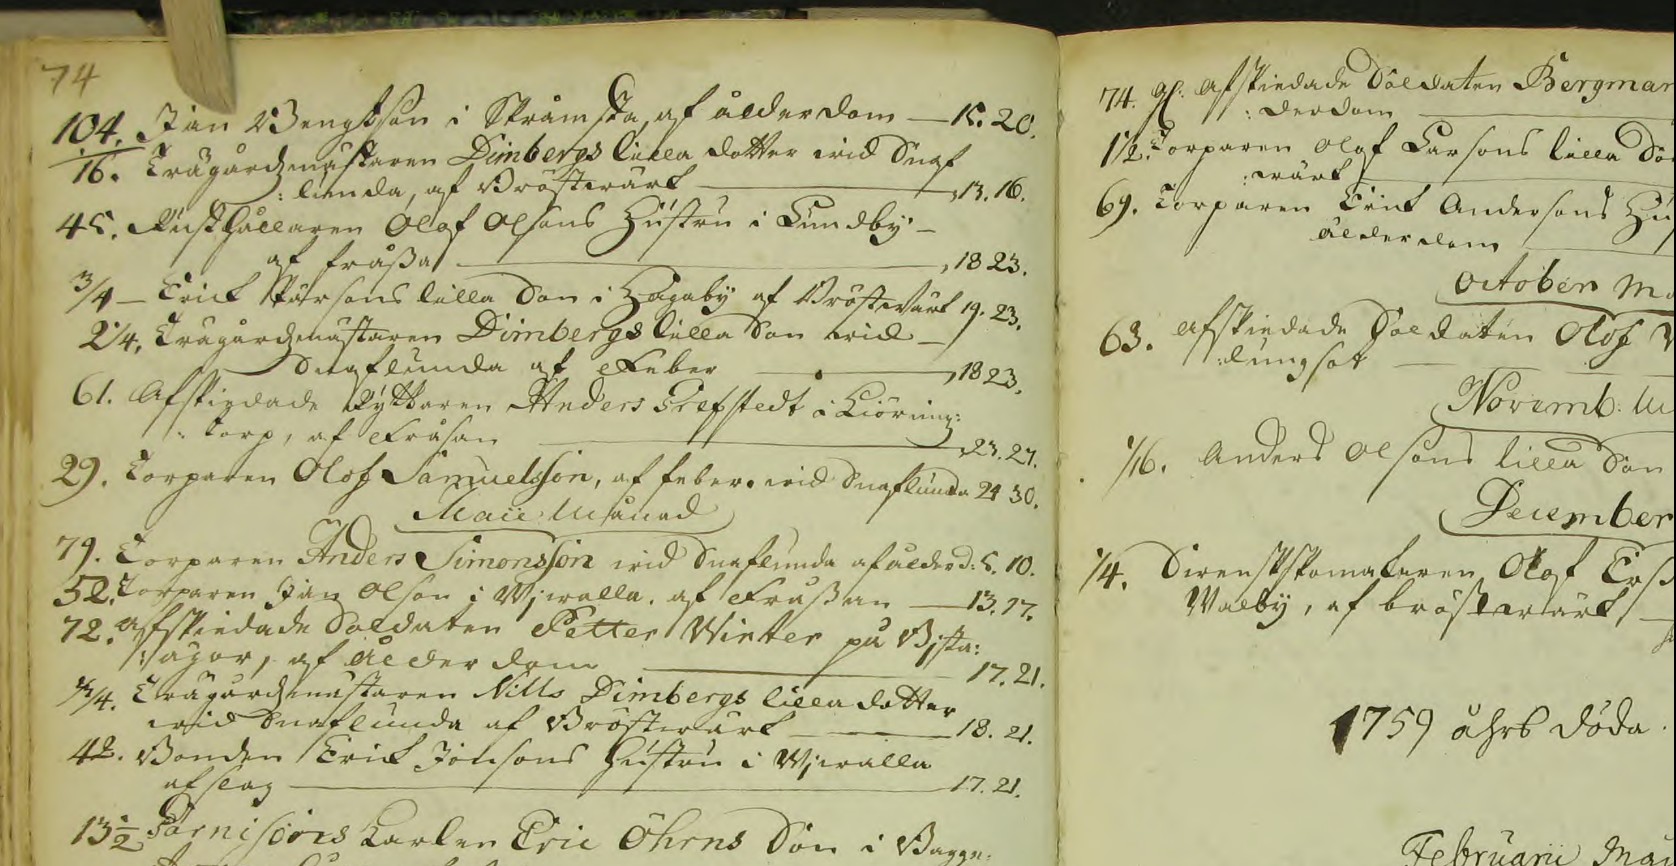 74
104. Jan Bengtson i Strömsta, af ålderdom — 15. 20.
16. Trägårdzmästaren Dimbergs lilla dotter wid Snaf
:lunda, af Bröstwärk — 13. 16.
45. Rusthållaren Olof Olsons Hustru i Lundby —
af fråssa — 18 23.
3/4 — Erick Pärsons lilla Son i Hågaby af Bröstwärk 19. 23.
2 1/4. Trägårdzmästaren Dimbergs lilla Son wid —
Snaflunda af Feber — 18 23.
61. Afskiedade Ryttaren Anders Grefstedt i
:torp, af Fråsan — 23. 27.
29. Torparen Olof Samuelsson, af feber. wid Snaflunda 24 30.
Maii Månad
79. Torparen Anders Simonsson wid Snaflunda af ålderd: 5. 10.
52. Torparen Jan Olson i Wjwalla. af Fråssan — 13. 17.
72. Afskiedade Soldaten Petter Winter på Bjsta:
:ågor, af Ålderdom — 17. 21.
Trägårdzmästaren Nills Dimbergs lilla dotter
wid Snaflunda af Bröstwärk — 18. 21.
42. Bonden Erick Jonsons Hustru i Wjwalla
af slag — 17. 21.
13 1/2 Garnisons Karlen Eric Öhrns Son i Bagge:
74. Afskiedade Soldaten Bergmar
:derdom —
1 1/2. Torparen Olof Larsons lilla
:wärk
69. Torparen Erick Andersons Hu
ålderdom —
October Må
63. Afskiedade Soldaten Olof
:lungsot —
Novemb: M
1/16. Anders Olsons lilla Son
December
1/4. Olof
Walby, af bröstwärk —
1759 åhrs döda.
Februarii Må